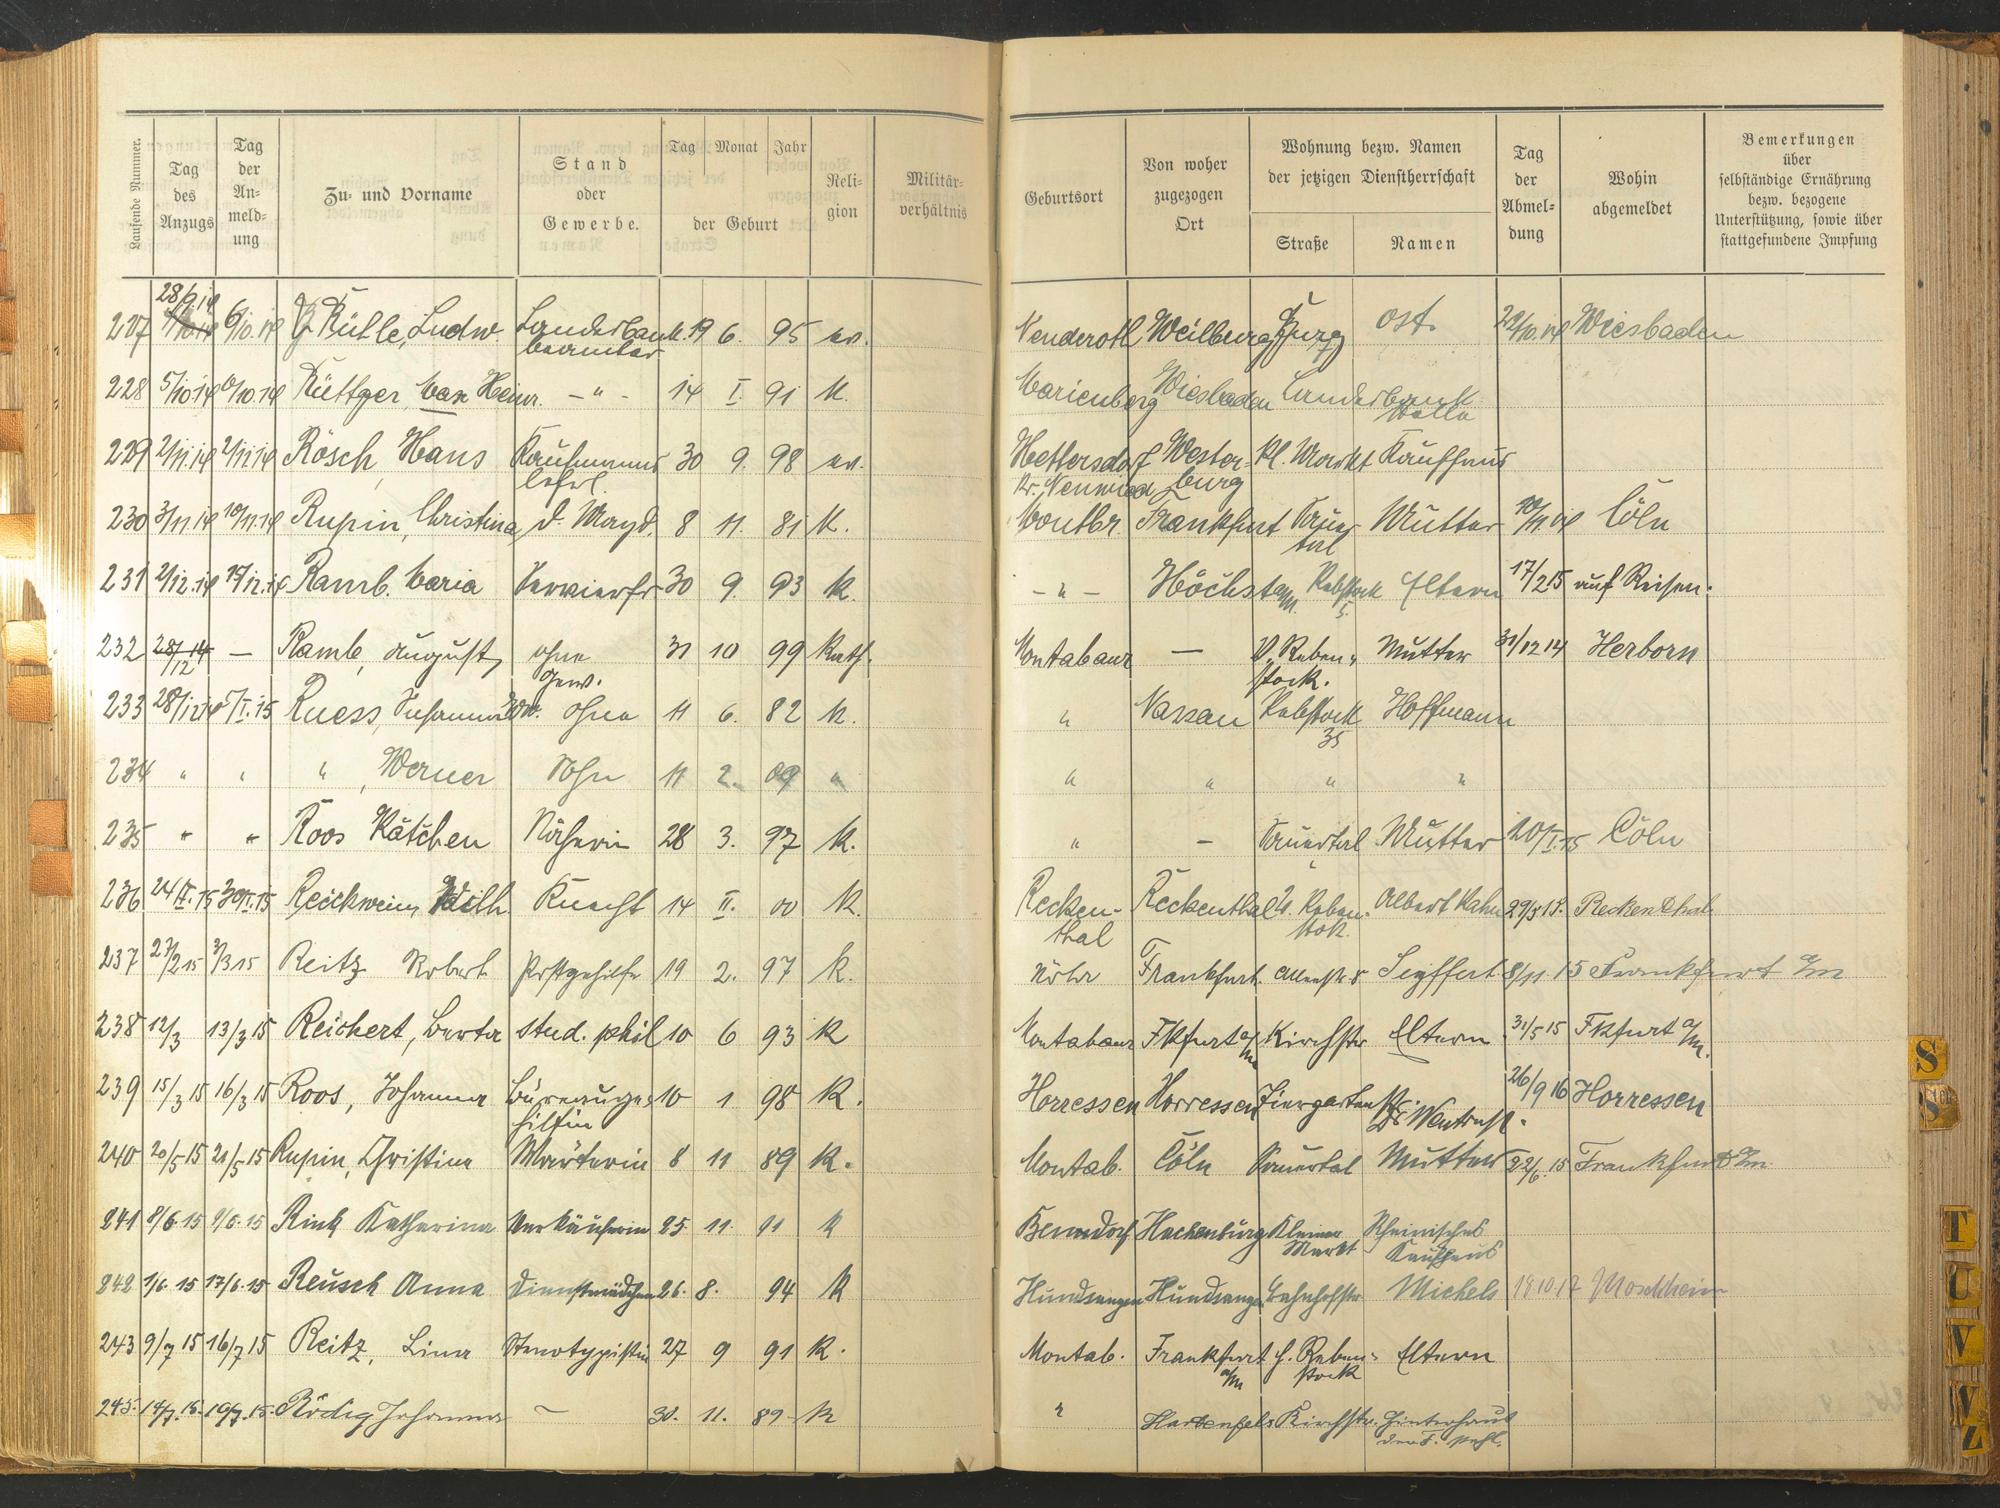 Laufende Nummer.
Tag des Anzugs
Tag der An-meld-ung
Zu- und Vorname
Stand oder Gewerbe.
Tag Monat Jahr der Geburt
Reli-gion
Militär-verhältnis
Geburtsort
Von woher zugezogen Ort
Wohnung bezw. Namen der jetzigen Dienstherrschaft
Straße Namen
Tag der Abmel-dung
Wohin abgemeldet
Bemerkungen über selbständige Ernährung bezw. bezogene Unterstützung, sowie über stattgefundene Impfung
227 28/9.14 6/10.14 Rühle, Ludw. Landesbank-beamter 19 6. 95 ev. Nenderoth Weilburg Ost. 22/10.14 Wiesbaden
228 5/10.14 6/10.14 Rüttger, Max Heinr. - " - 14 I. 91 K. Marienberg Wiesbaden Landesbank
229 2/11.14 2/11 14 Rösch, Hans Kaufmanns lehrl. 30 9. 98 ev. Hettersdorf Kr. Neuwied Wester-burg Kl. Markt Kaufhaus
230 3/11.14 10/11.14 Rupin, Christina d. Magd. 8 11. 81 K. Montbr. Frankfurt Sauertal Mutter Cöln
231 2/12.14 15/12.14 Ramb. Maria Servierfr 30 9. 93 K. - " - Höchst a/M. Rebstock 5. Eltern 17/2 15 auf Reisen.
232 28/12 14 — Ramb, August, ohne Gew. 31 10 99 Kath. Montabaur — V. Reben-stock. Mutter 31/12 14 Herborn
233 28/12 14 5/I.15 Ruess, Susanna Ww. ohne 11 6. 82 K. " Nassau Rebstock 35 Hoffmann
234 " " " , Werner Sohn 11 2. 09 " " " " "
235 " " Roos Kätchen Näherin 28 3. 97 K. " - Sauertal Mutter 20/I.15 Cöln
236 24/II.15 30/II.15 Reichwein, Wilh. Knecht 14 II. 00 K. Recken-thal Reckenthal V. Reben-stok. Albert Kahn 29/5 15. Reckenthal
237 27/2 15 3/3 15 Reitz Robert Postgehilfe 19 2. 97 K. Höhr Frankfurt. Alleestr 8 Seyffert 8/11.15 Frankfurt a/M
238 12/3 13/3 15 Reichert, Berta stud. phil 10 6 93 K Montabaur Fkfurt a/M Kirchstr Eltern 31/5 15 Fkfurt a/M.
239 15/3 15 16/3 15 Roos, Johanna Büreauge-hilfin 10 1 98 K. Horressen Horressen Tiergartenstr. 26/9 16 Horressen
240 20/5 15 21/5 15 Rupin, Christina Wärterin 8 11 89 K. Montab. Cöln Sauertal Mutter 22/6.15 Frankfurt a/M.
241 8/6.15 9/6.15 Rink Katharina Verkäuferin 25. 11. 91 K Benndorf Hachenburg Kleiner Markt Rheinisches Kaufhaus
242 1/6 15 17/6.15 Reusch Anna Dienstmädchen 26. 8. 94 K Hundsangen Hundsangen Bahnhofstr Michels 18 10.17 Moschheim
243 9/7 15 16/7 15 Reitz, Lina Stenotypistin 27 9 91 K. Montab. Frankfurt a/M h. Reben-stock Eltern
245. 14/7.15. 19/7.15. Rödig Johanna — 30. 11. 89 K " Hartenfels Kirchstr. Hinterhaus
S
Sch
T
U
V
W
Z